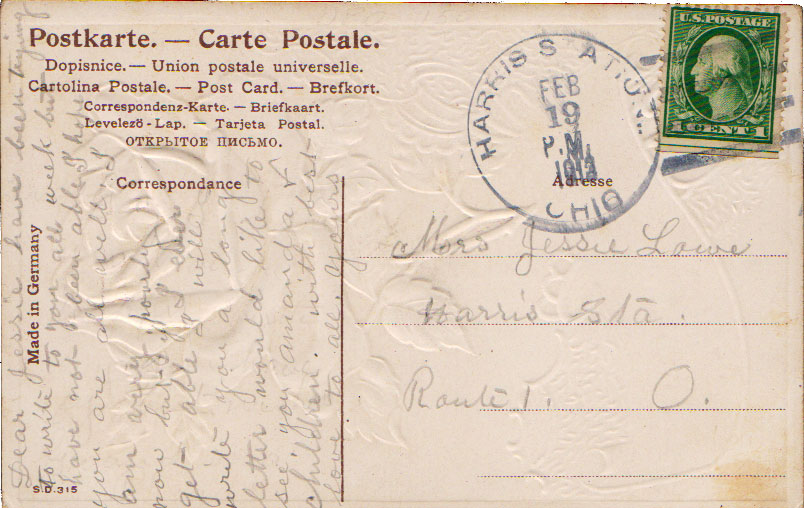 Postkarte. — Carte Postale.
Dopisnice. — Union postale universelle.
Cartolina Postale. — Post Card. — Brefkort.
Correspondenz-Karte. — Briefkaart.
Levelező-Lap. — Tarjeta Postal.
ОТКРЫТОЕ ПИСЬМО.
Correspondance
Adresse
Made in Germany
S.D. 315
U.S. POSTAGE
1 CENT 1
HARRIS STATION
FEB
19
P.M.
OHIO
Mrs Jessie Lowe
Harris Sta.
Route 1. O.
Dear Jessie have been trying
to write to you all week but
have not been able I hope
you are all well. I
am very poorly
now but if I ever
get able I will
write you a long
letter would like to
see you Amanda &
children. with best
love to all. yours